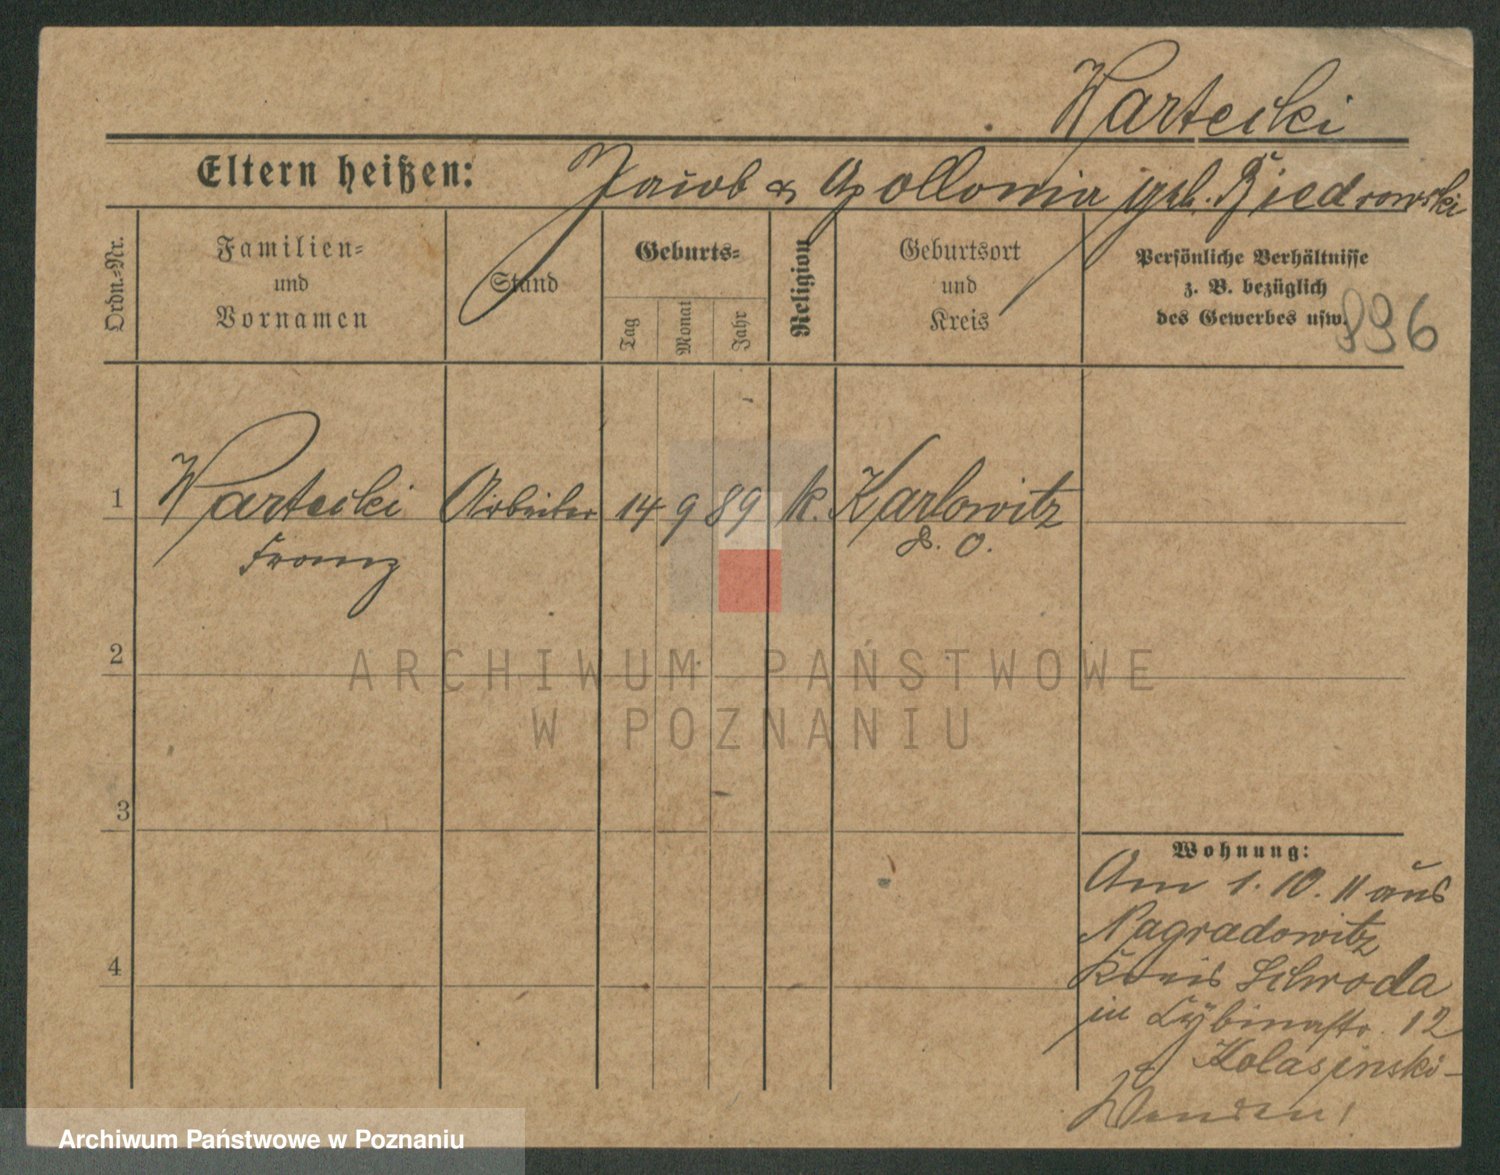 Wartecki
Eltern heißen: Jacob & Apollonia geb. Biedrowski
Ordn.-Nr.
Familien-
und
Vornamen
Stand
Geburts-
Tag
Monat
Jahr
Religion
Geburtsort
und
Kreis
Persönliche Verhältnisse
z. B. bezüglich
des Gewerbes usw.
896
1 Wartecki Arbeiter 14 9 89 k. Karlowitz
Franz S. O.
2
3
4
Wohnung:
Am 1. 10. 11 aus
Nagradowitz
Kreis Schroda
in Cybinastr. 12
Kolasinski-
ARCHIWUM PAŃSTWOWE
W POZNANIU
Archiwum Państwowe w Poznaniu